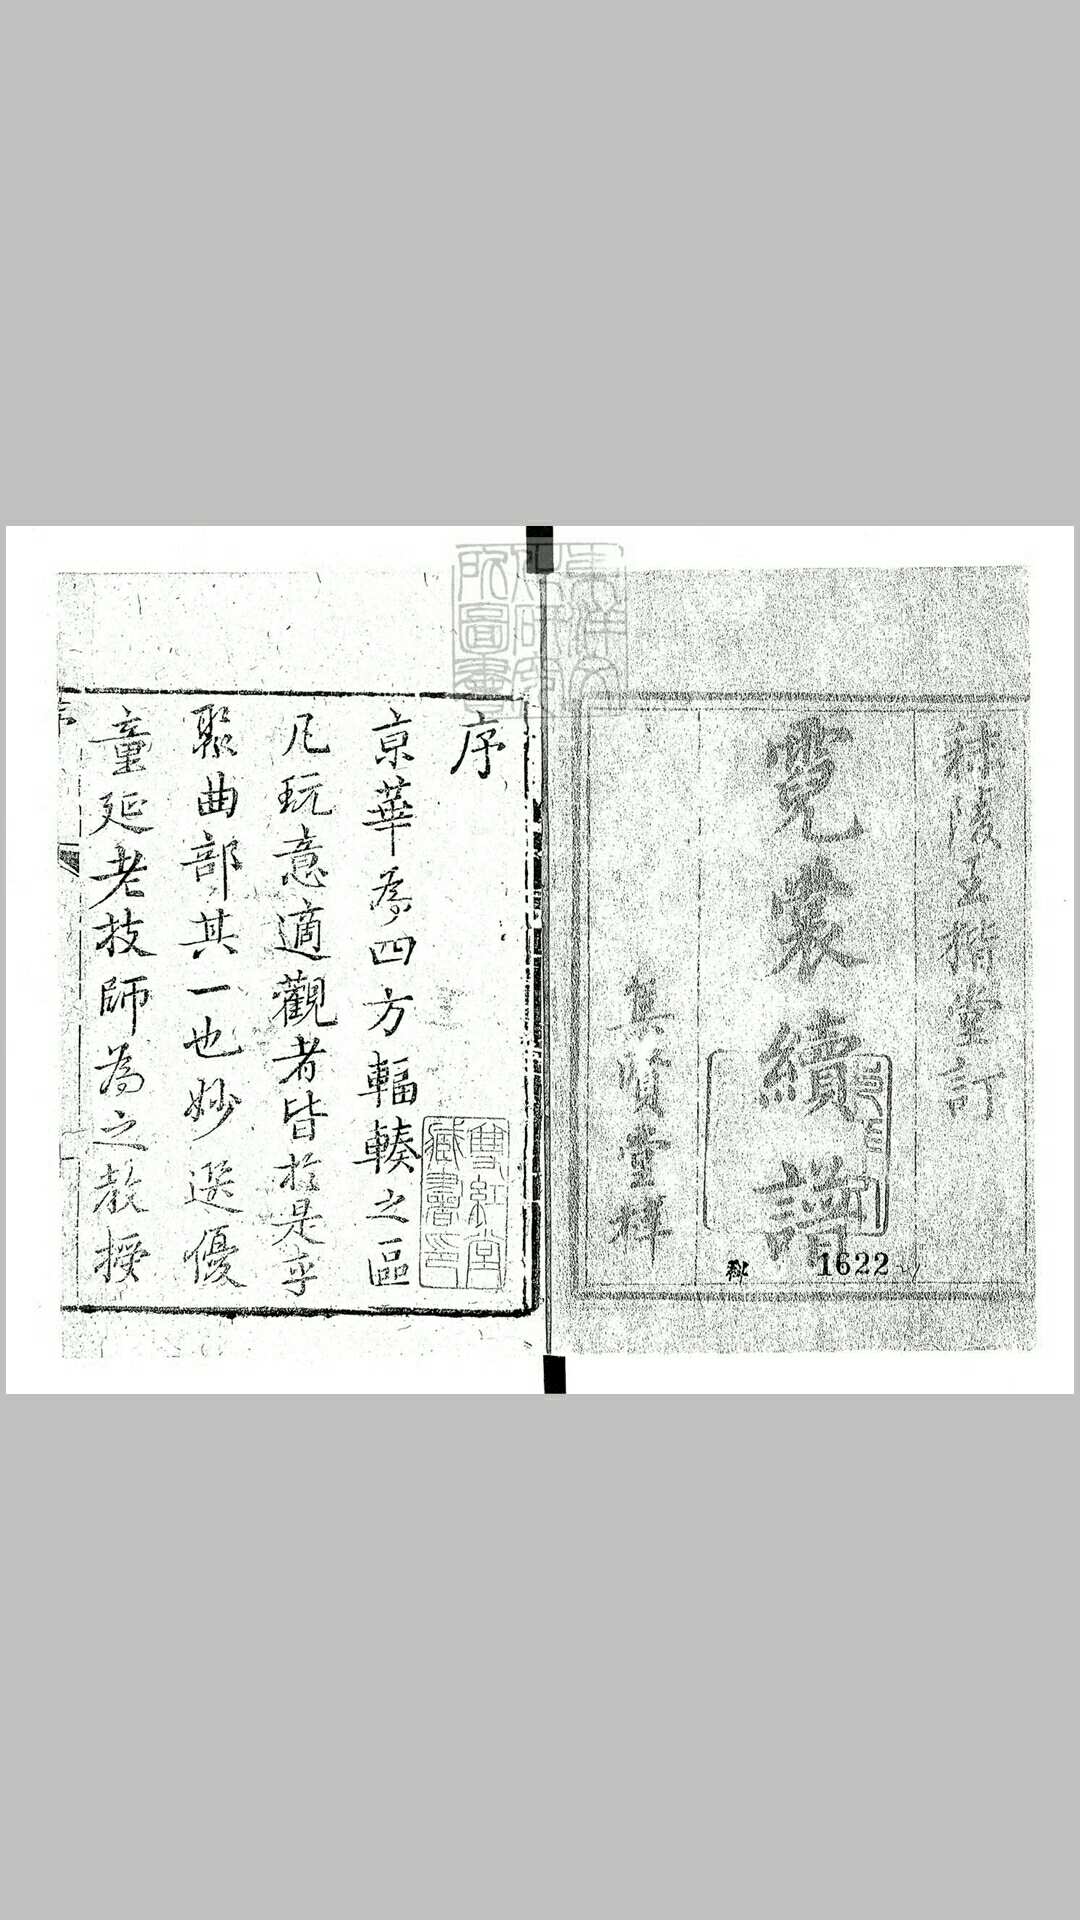 秣陵王楷堂訂
霓裳續譜
集賢堂梓
1622
序
京華為四方輻輳之區
凡玩意適觀者皆於是乎
聚曲部其一也妙選優
童延老技師為之教授
雙紅堂
藏書印